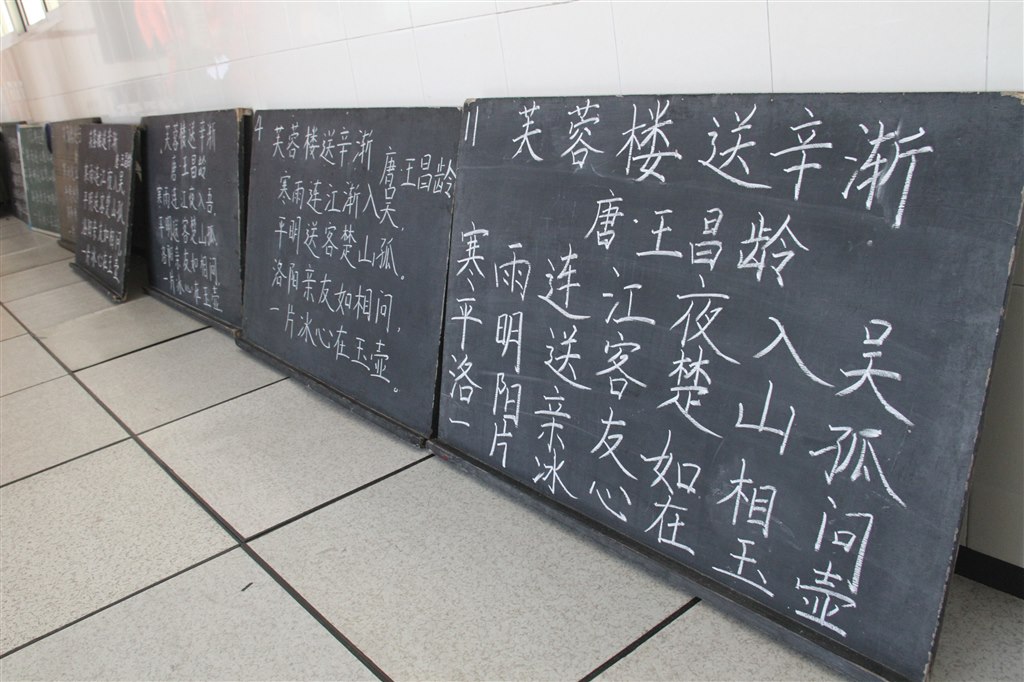 芙蓉楼送辛渐
唐·王昌龄
寒雨连江夜入吾
平明送客楚山孤
洛阳亲友如相问
一片冰心在玉壶
4
芙蓉楼送辛渐
唐·王昌龄
寒雨连江渐入吴。
平明送客楚山孤。
洛阳亲友如相问,
一片冰心在玉壶。
11
芙蓉楼送辛渐
唐·王昌龄
寒雨连江夜入吴
平明送客楚山孤
洛阳亲友如相问
一片冰心在玉壶